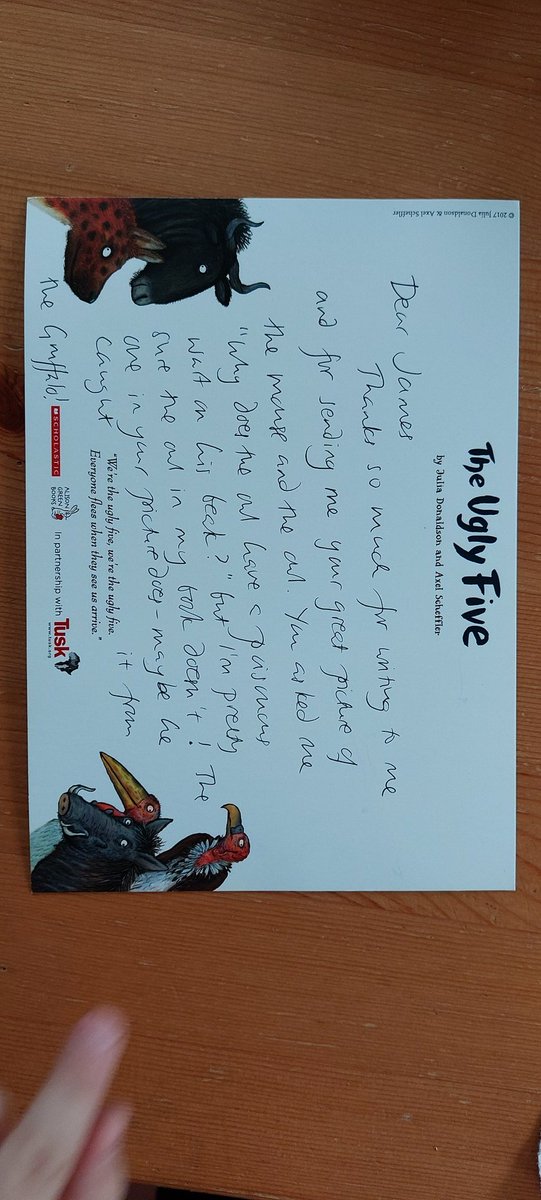 © 2017 Julia Donaldson & Axel Scheffler
The Ugly Five
by Julia Donaldson and Axel Scheffler
Dear James
Thanks so much for writing to me
and for sending me your great picture of
the mouse and the owl. You asked me
"Why does the owl have a poisonous
wart on his beak?" but I'm pretty
sure the owl in my book doesn't! The
one in your picture does - maybe he
caught it from
the Gruffalo!
"We're the ugly five, we're the ugly five.
Everyone flees when they see us arrive."
SCHOLASTIC
ALISON GREEN BOOKS
In partnership with Tusk
www.tusk.org